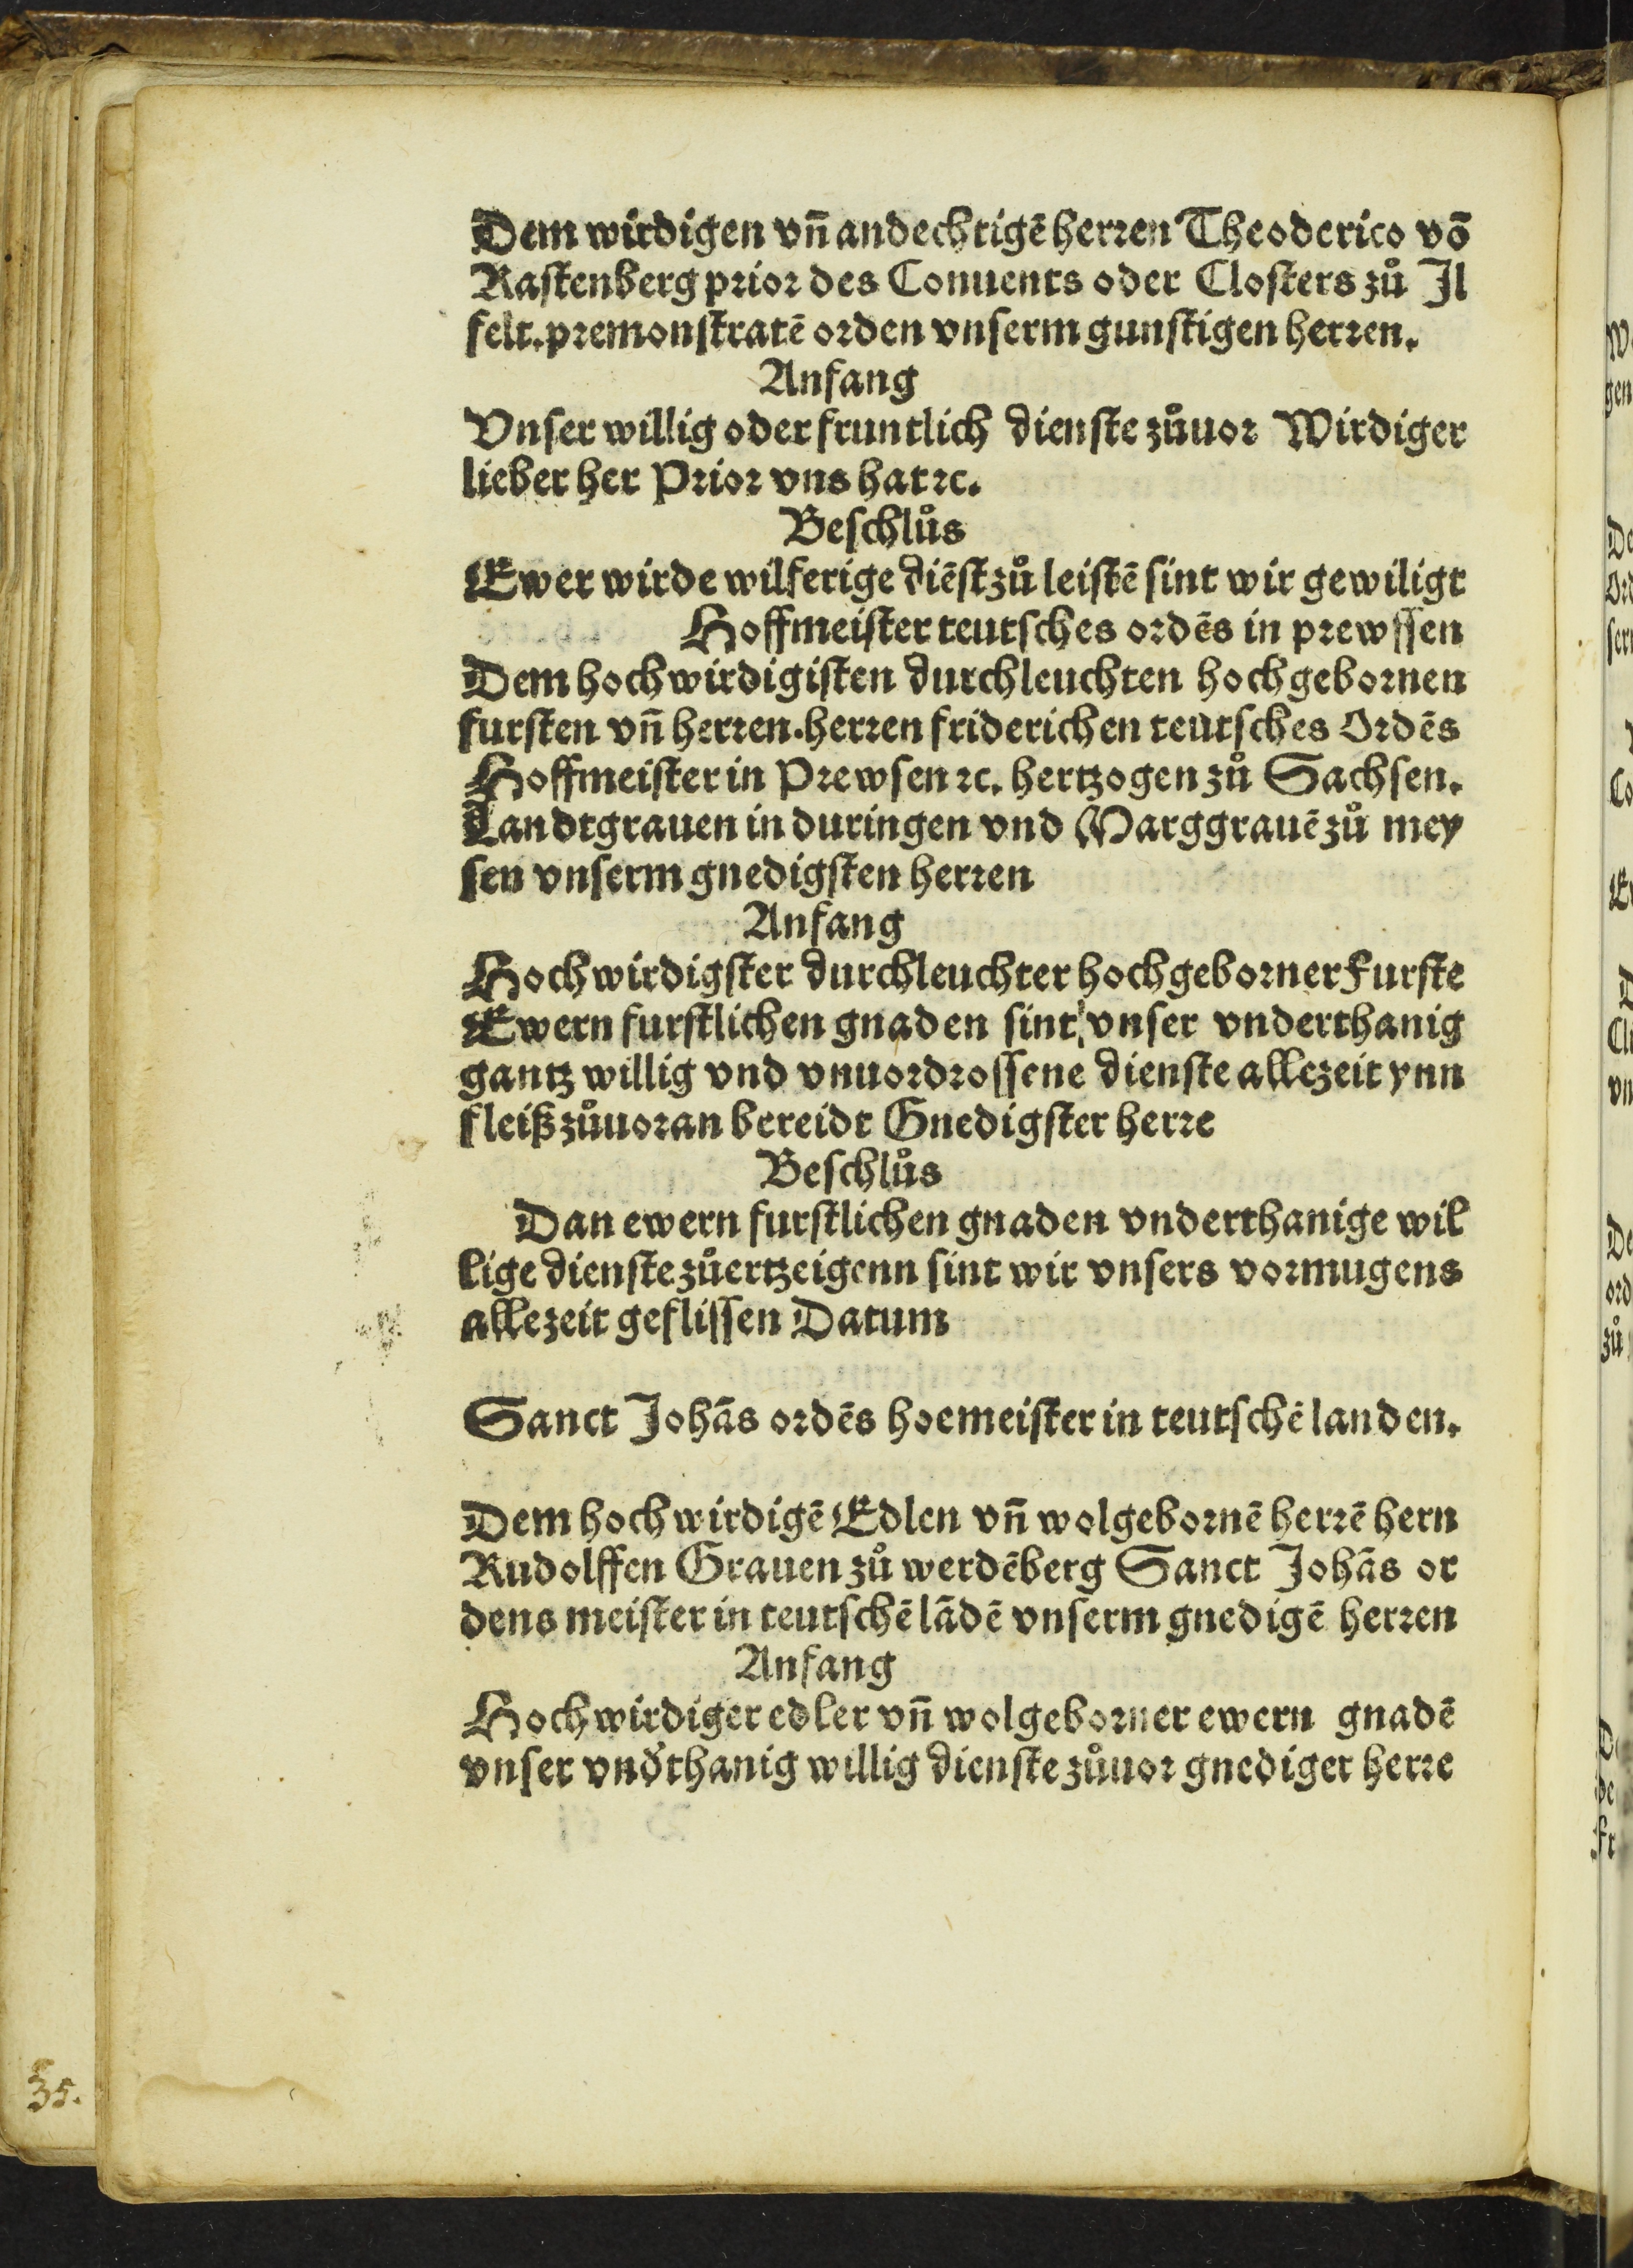 Dem wirdigen vñ andechtigē herren Theoderico vō
Rastenberg prior des Conuents oder Closters zů Jl
felt. premonstratē orden vnserm gunstigen herren.
Anfang
Vnser willig oder fruntlich dienste zůuor Wirdiger
lieber her Prior vns hat ꝛc.
Beschlůs
Ewer wirde wilferige diēst zů leistē sint wir gewiligt
Hoffmeister teutsches ordēs in prewssen
Dem hochwirdigisten durchleuchten hochgebornen
fursten vñ herren. herren friderichen teutsches Ordēs
Hoffmeister in Prewsen ꝛc. hertzogen zů Sachsen.
Landtgrauen in duringen vnd Marggrauē zů mey
sen vnserm gnedigsten herren
Anfang
Hochwirdigster durchleuchter hochgeborner Furste
Ewern furstlichen gnaden sint vnser vnderthanig
gantz willig vnd vnuordrossene dienste allezeit ynn
fleiß zůuoran bereidt Gnedigster herre
Beschlůs
Dan ewern furstlichen gnaden vnderthanige wil
lige dienste zůertzeigenn sint wir vnsers vormugens
allezeit geflissen Datum
Sanct Johās ordēs hoemeister in teutschē landen.
Dem hochwirdigē Edlen vñ wolgebornē herrē hern
Rudolffen Grauen zů werdēberg Sanct Johās or
dens meister in teutschē lādē vnserm gnedigē herren
Anfang
Hochwirdiger edler vñ wolgeborner ewern gnadē
vnser vnd̓thanig willig dienste zůuor gnediger herre
35.